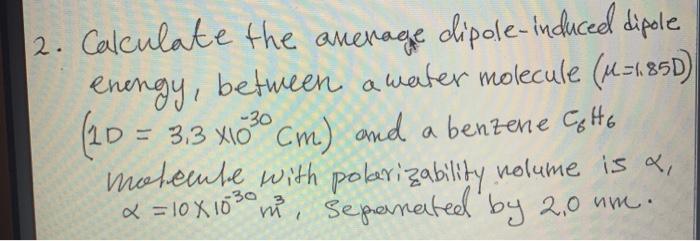 2. Calculate the average dipole-induced dipole
energy, between a water molecule (μ=1.85D)
(1D = 3,3 X10⁻³⁰ Cm) and a benzene C₆H₆
molecule with polarizability volume is α,
α = 10 X 10⁻³⁰ m³, seperated by 2,0 nm.